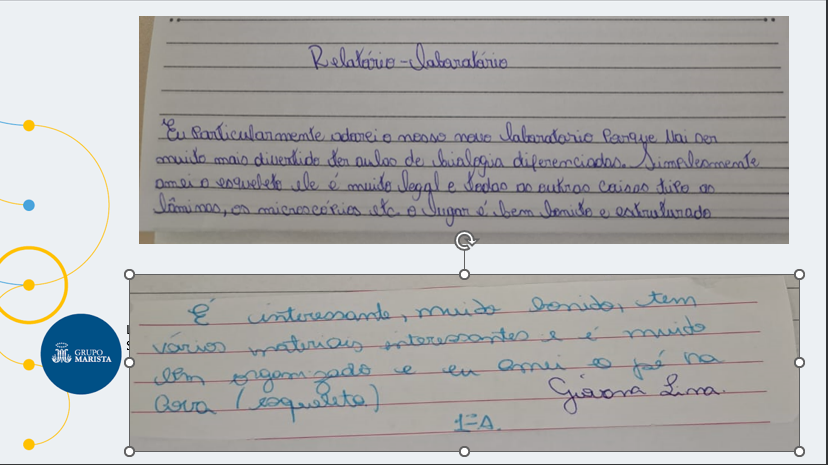 Relatório - laboratório
Eu particularmente adorei o nosso novo laboratorio Porque vai ser
muito mais divertido ter aulas de biologia diferenciadas. Simplesmente
amei o esqueleto ele é muito legal e todas as outras coisas tipo as
lâminas, os microscópios etc. o lugar é bem bonito e estruturado
É interessante, muito bonito, tem
vários materiais interessantes e é muito
bem organizado e eu amei o pé na
cova (esqueleto)
Giovana Lima.
1ºA.
GRUPO
MARISTA